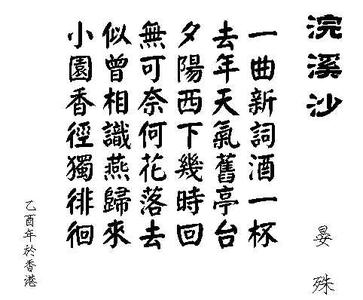 浣溪沙
晏殊
一曲新詞酒一杯
去年天氣舊亭台
夕陽西下幾時回
無可奈何花落去
似曾相識燕歸來
小園香徑獨徘徊
乙酉年於香港